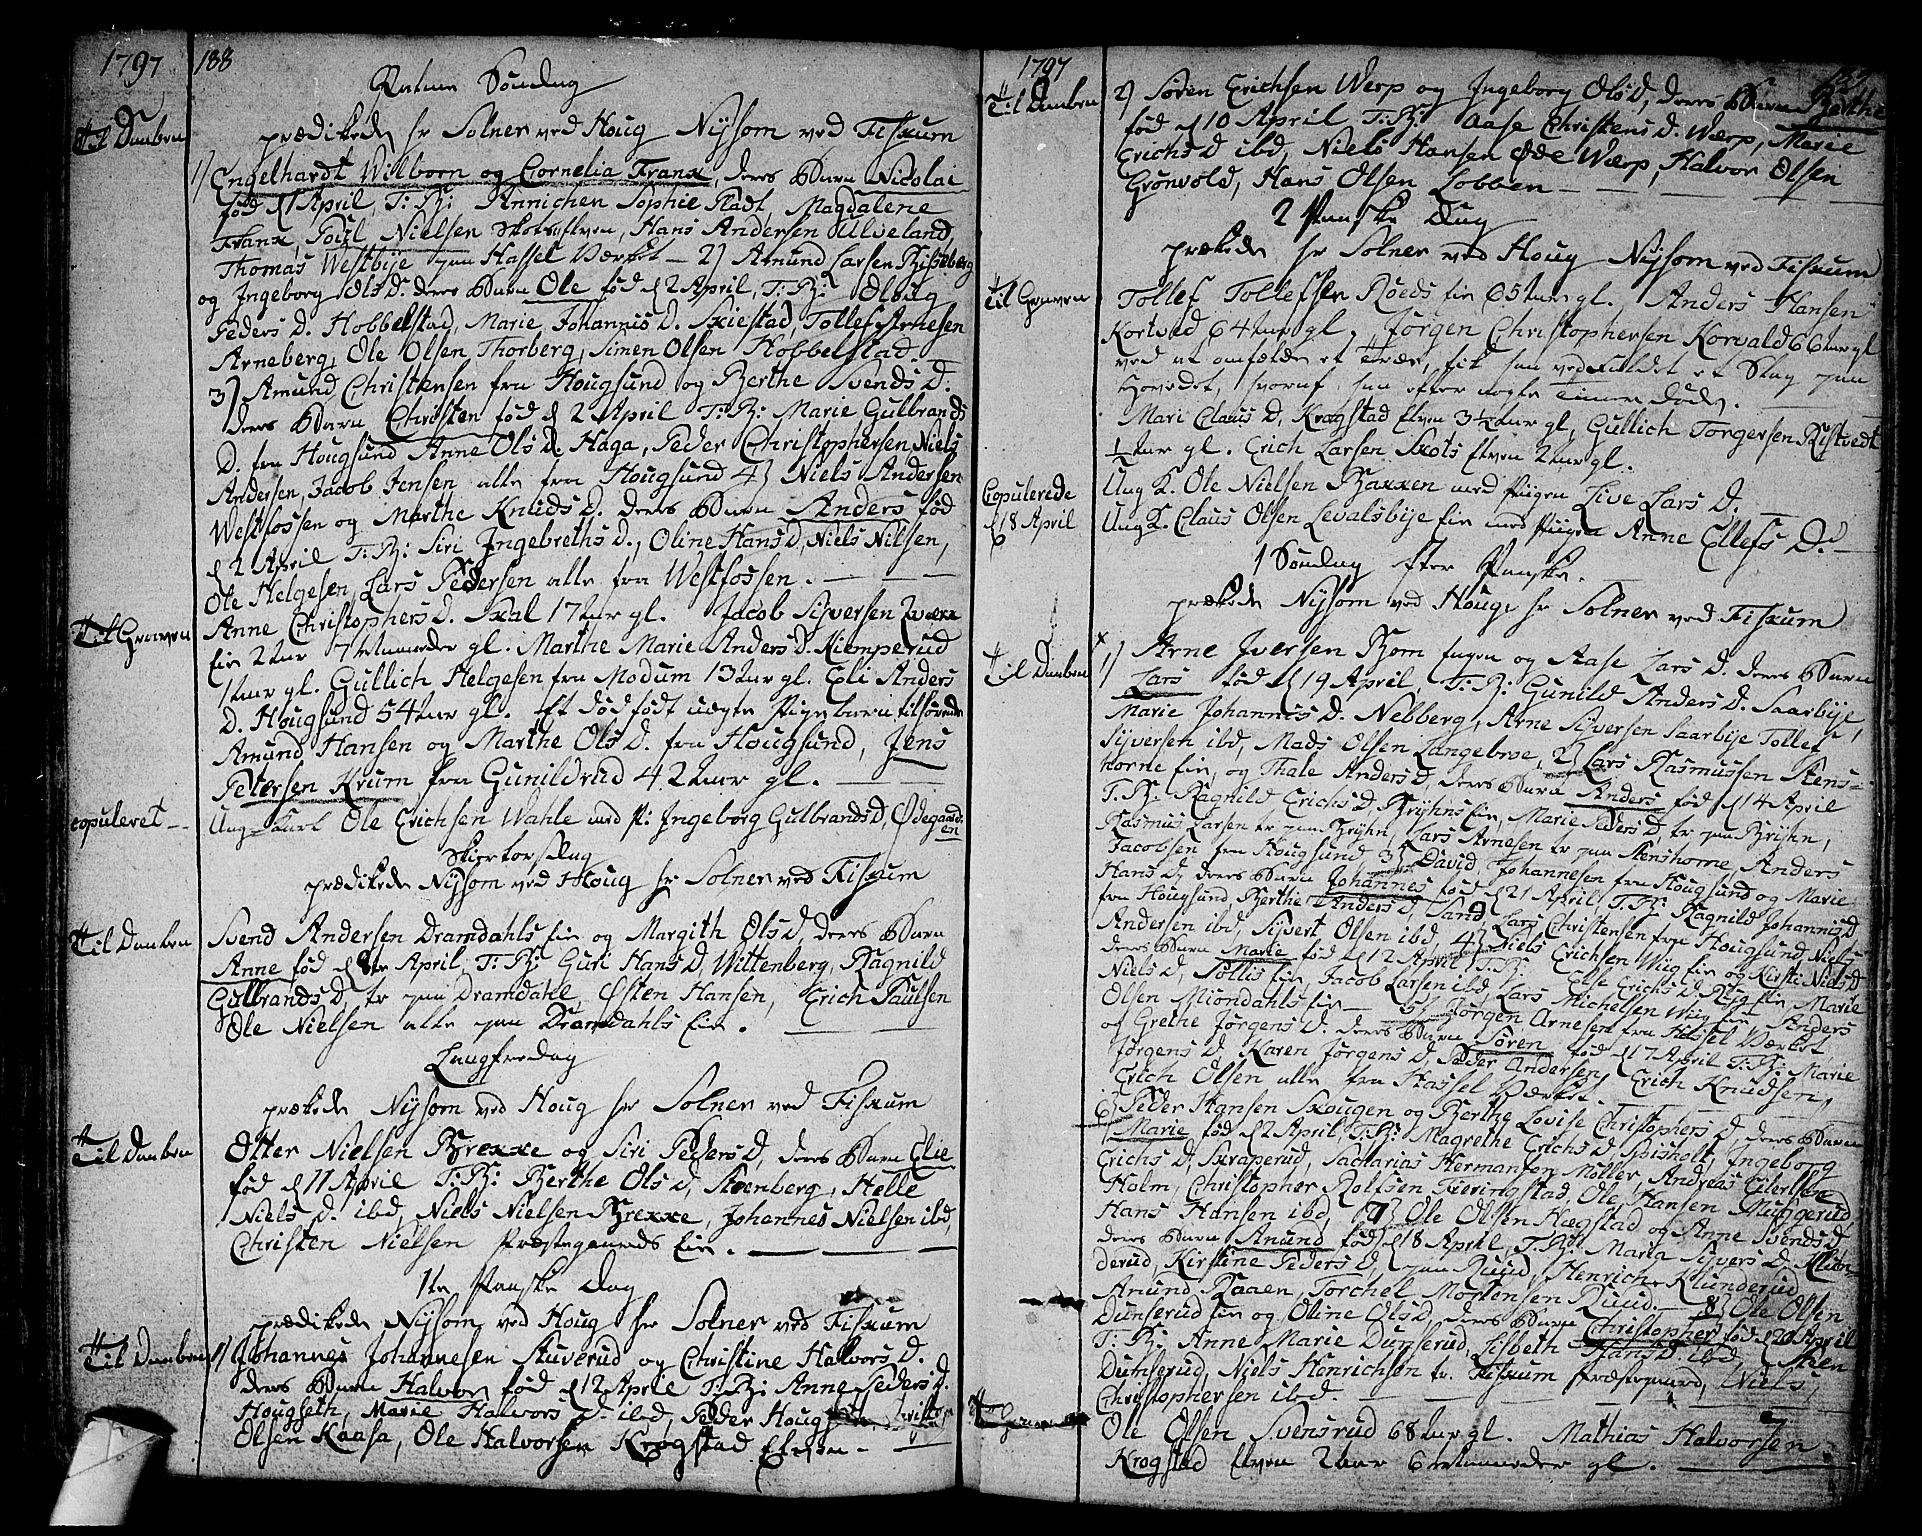 1797 188
Palme Søndag
Til Daaben
prædikede hr Solner ved Houg Nysom ved Fiskum
1) Engelhardt Wilborn og Cornelia Franx, deres Barn Nicolai
fød d 1 April, T: B: Annichen Sophie Flådt, Magdalene
Franx, Poul Nielsen Skoebstven, Hans Andersen Ulveland
Thomas Westbye paa Hassel Værket – 2) Amund Larsen Risseberg
og Ingeborg Ols D. deres Barn Ole fød d 2 April, T: B: Olaug
Peders D. Hobbelstad, Marie Johannis D. Skiestad, Tollef Arnesen
Arneberg, Ole Olsen Thorberg, Simen Olsen Hobbelstad.
3) Amund Christensen fra Hougsund og Berthe Svends D.
deres Barn Christen fød d 2 April T: B: Marie Gulbrands
D. fra Hougsund Anne Ols D. Haga, Peder Christophersen Niels
Andersen, Jacob Jensen alle fra Hougsund 4) Niels Andersen
Westfossen og Marthe Knuds D. deres Barn Anders fød
d 2 April T: B: Siri Ingebreths D., Oline Hans D, Niels Nilsen,
Ole Helgesen, Lars Pedersen alle fra Westfossen.
Til Graven
Anne Christophers D. Skal 17 Aar gl. Jacob Siversen
Eie 2 Aar 7 Maaneder gl. Marthe Marie Anders D. Kiemperud
1 Aar gl. Gullich Helgesen fra Modum 13 Aar gl. Eli Anders
D. Hougsund 54 Aar gl. Et dødfødt uægte Pigebarn tilhørende
Amund Hansen og Marthe Ols D. fra Hougsund, Jens
Petersen Krum fra Gunildrud 42 Aar gl.
copuleret
Ung Karl Ole Erichsen Wahle med Pi: Ingeborg Gulbrands D, Ødegaarden
Skiertorsdag
prædikede Nysom ved Houg hr Solner ved Fiskum
Til Daaben
Svend Andersen Dramdahls Eie og Margith Ols D, deres Barn
Anne fød d 8 April, T: B: Guri Hans D, Wittenberg, Ragnild
Gulbrands D, tr paa Dramdahl, Østen Hansen, Erich Paulsen
Ole Nielsen alle paa Dramdahls Eie.
Langfredag
prækede Nysom ved Houg hr Solner ved Fiskum
Til Daaben
Otter Nielsen Brekke og Siri Peders D, deres Barn Elie
fød d 11 April T: B: Berthe Ols D, Steenberg, Helle
Niels D. ibd, Niels Nielsen Brekke, Johannes Nielsen ibd,
Christen Nielsen Præstegaards Eie.
1te Paaske Dag
prædikede Nysom ved Houg hr Solner ved Fiskum
Til Daaben
1) Johannes Johannesen Stuverud og Christine Halvors D.
deres Barn Halvor fød d 12 April T: B: Anne Peders D.
Hougseth, Marie Halvors D. ibd, Peder
Olsen Kaasa, Ole Halvorsen Krogstad
1797
Til Daaben
2) Søren Erichsen Werp og Ingeborg Ols D, deres Barn Berthe
fød d 10 April T: B: Aase Christens D. Werp, Marie
Erichs D ibd, Niels Hansen Øde Werp, Halvor Olsen
Grønvold, Hans Olsen Lobben
2 Paaske Dag
prækede hr Solner ved Houg Nysom ved Fiskum
Til Graven
Tollef Tollefsen Røeds Eie 65 Aar gl. Anders Hansen
Kortved 64 Aar gl, Jørgen Christophersen Korvald 66 Aar gl
ved at omfælde et Træe, fik han ved Faldet et Slag paa
Hovedet, hvoraf han efter nogle Timer døde.
Mari Claus D, Krogstad 3½ Aar gl, Gullich Torgersen Kistvedt
½ Aar gl. Erich Larsen Skots 2 Aar gl.
Copulerede
d 18 April
Ung K. Ole Nielsen Bakken med Pigen Live Lars D.
Ung K. Claus Olsen Levalsbye Eie med Pigen Anne Ellefs D.
1 Søndag efter Paaske.
prækede Nysom ved Houg hr Solner ved Fiskum
Til Daaben
1) Arne Iversen Bom Engen og Aase Lars D. deres Barn
Lars fød d 19 April, T: B: Gunild Anders D. Saarbye,
Marie Johannis D. Nebberg, Arne Syversen Saarbye Tollef
Syversen ibd, Mads Olsen Langebroe, 2) Lars Rasmussen Stens=
horne Eie, og Thale Anders D, deres Barn Anders fød d 14 April
T. B. Ragnild Erichs D, Bryhns Eie, Marie Peders D, tr paa Bryhn,
Rasmus Larsen tr paa Bryhn, Lars Arnesen tr paa Stenshorne, Anders
Jacobsen fra Hougsund, 3) David Johannesen fra Hougsund og Marie
Hans D, deres Barn Johannes fød d 21 April T: B: Ragnild Johannis D
fra Hougsund, Berthe Anders D, Sand, Lars Christensen fra Hougsund, Niels
Andersen ibd, Sivert Olsen ibd, 4) Niels Erichsen Wiig Eie og Kirsti Niels D
deres Barn Marie fød d 12 April T: B: Else Erichs D, Eie, Marie
Niels D, Sollis Eie, Jacob Larsen ibd, Lars Michelsen Wiig Eie Anders
Olsen Miøndahls Eie – 5) Jørgen Arnesen fra Hassel Værket
og Grethe Jørgens D. deres Barn Søren fød d 17 April T: B: Marie
Jørgens D, Karen Jørgens D, Peder Andersen, Erich Knudsen,
Erich Olsen alle fra Hassel Værket.
6) Peder Hansen Skougen og Berthe Lovise Christophers D, deres Barn
Marie fød d 2 April, T: B: Magrethe Erichs D, Spisholt, Ingeborg
Erichs D, Skraperud, Zacharias Hermansen Møller, Andreas Eilertsen
Holm, Christopher Rolfsen Fieringstad, Ole Hansen Muggerud,
Hans Hansen ibd, 7) Ole Olsen Hægstad og Anne Svends D
deres Barn Anund fød d 18 April, T: B: Maria Sivers D, Mun=
derud, Kirstine Peders D, paa Ruud, Henrich Klunderud
Anund Baaen, Torchel Mortensen Ruud. – 8) Ole Olsen
Dunserud Eie og Oline Ols D, deres Barn Christopher fød d 20 April
T: B: Anne Marie Dunserud, Lisbeth Hans D. ibd, Steen
Dunserud, Niels Henrichsen tr. Fiskum Præstegaard, Niels
Christophersen ibd.
Til Graven
Ole Olsen Svensrud 68 Aar gl. Mathias Halvorsen
Krogstad 2 Aar 6 Maaneder gl.